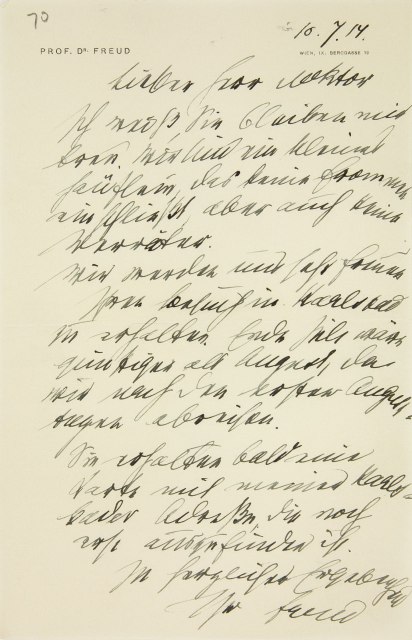 70
10.7.14
PROF. DR. FREUD
WIEN, IX. BERGGASSE 19
Lieber Herr Doktor
Ich weiß Sie bleiben mir
treu. Wir sind ein kleines
Häuflein, das keine Frommen
einschließt, aber auch keine
Verräter.
Wir werden uns sehr freuen
Ihren Besuch in Karlsbad
zu erhalten. Ende Juli wäre
günstiger als August, da
wir nach den ersten August-
tagen abreisen.
Sie erhalten bald eine
Karte mit meiner Karls-
bader Adreße, die noch
erst ist.
In herzlicher Ergebenheit
Ihr Freud